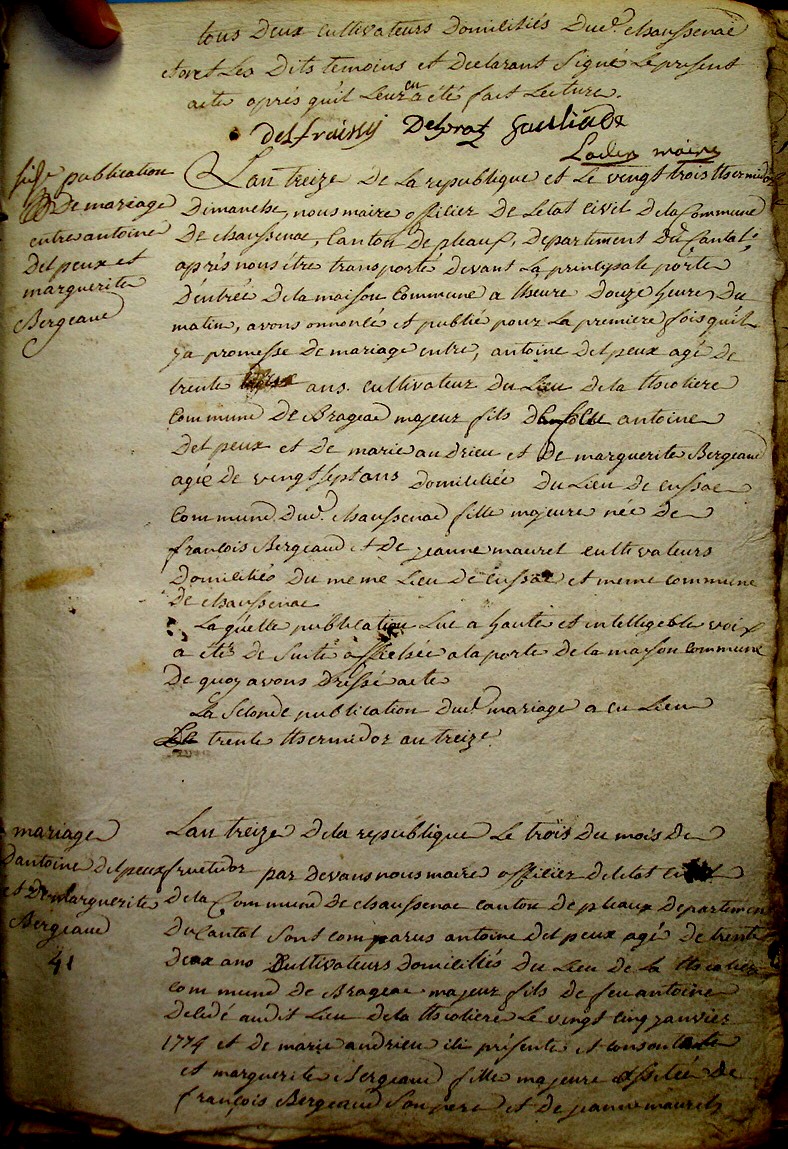 tous deux cultivateurs domiciliés dud. chaussenac
et ont les dits temoins et declarant signé le present
acte aprés quil leur en a été fait lecture.
delfraissy Delprat
Laden maire
publication
de mariage
entre antoine
delpeux et
marguerite
Bergeaud
Lan treize de la republique et le vingt trois thermidor
dimanche, nous maire officier de letat civil dela Commune
de chaussenac, Canton de pleaux, departement du Cantal,
aprés nous être transporté devant la principale porte
d'entrée dela maison Commune a lheure douze heures du
matin, avons annoncé et publié pour la premiere fois quil
y a promesse de mariage entre, antoine delpeux agé de
trente ans cultivateur du Lieu dela
Commune de Brageac majeur fils antoine
delpeux et de marie andrieu et de marguerite Bergeaud
agée de vingt sept ans domiciliée du Lieu de cussac
Commune dud. chaussenac fille majeure née de
francois Bergeaud et de jeanne mauret cultivateurs
domiciliés du meme Lieu de cussac et meme commune
de chaussenac
La quelle publication lue a haute et intelligible voix
a été de suite affichée a la porte de la maison commune
de quoy avons dressé acte
La seconde publication dud. mariage a eu Lieu
Le trente thermidor an treize.
mariage
dantoine delpeux
et de marguerite
Bergeaud
41
Lan treize dela republique Le trois du mois de
fructidor par devans nous maire officier deletat civil
dela Commune de chaussenac canton de pleaux departement
du Cantal sont comparus antoine delpeux agé de trente
deux ans Cultivateurs domiciliés du Lieu de la
commune de Brageac majeur fils de feu antoine
decedé audit Lieu dela le vingt cinq janvier
1774 et de marie andrieu ici présente et consentante
et marguerite Bergeaud fille majeure assistée de
françois Bergeaud son pere et de jeanne mauret